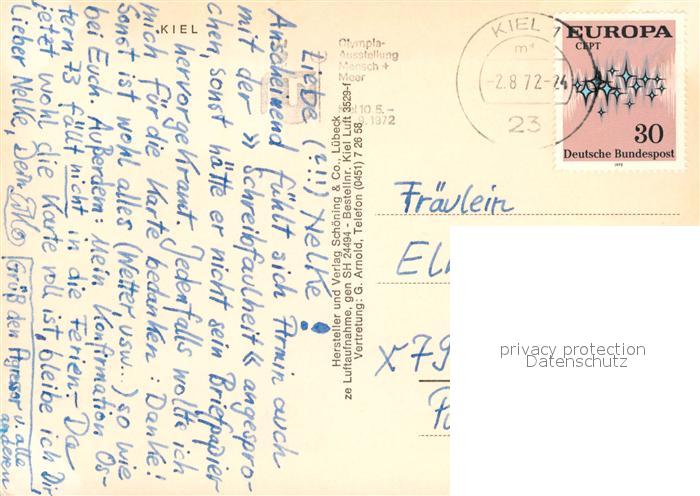 KIEL
Liebe (?!!) Nelke!
Anscheinend fühlt sich Armin auch
mit der » Schreibfaulheit « angespro-
chen, sonst hätte er nicht sein Briefpapier
hervorgekramt. Jedenfalls wollte ich
mich für die Karte bedanken: Danke!
Sonst ist wohl alles (Wetter, usw...) so wie
bei Euch. Außerdem: Mein Konfirmation Os-
tern 73 fällt nicht in die Ferien. – Da
jetzt wohl die Karte voll ist, bleibe ich Dir
Lieber Nelke, Dein
Grüß den Agressor u. alle
anderen
Olympia-
Ausstellung
Mensch +
Meer
Kiel 10.6.–
.9.1972
Hersteller und Verlag Schöning & Co., Lübeck
ze Luftaufnahme, gen SH 24494 - Bestellnr. Kiel Luft 3529-f
Vertretung: G. Arnold, Telefon (0451) 7 26 58
KIEL 7
m
-2.8.72-24
23
EUROPA
CEPT
30
Deutsche Bundespost
1972
Fräulein
El
X79
privacy protection
Datenschutz